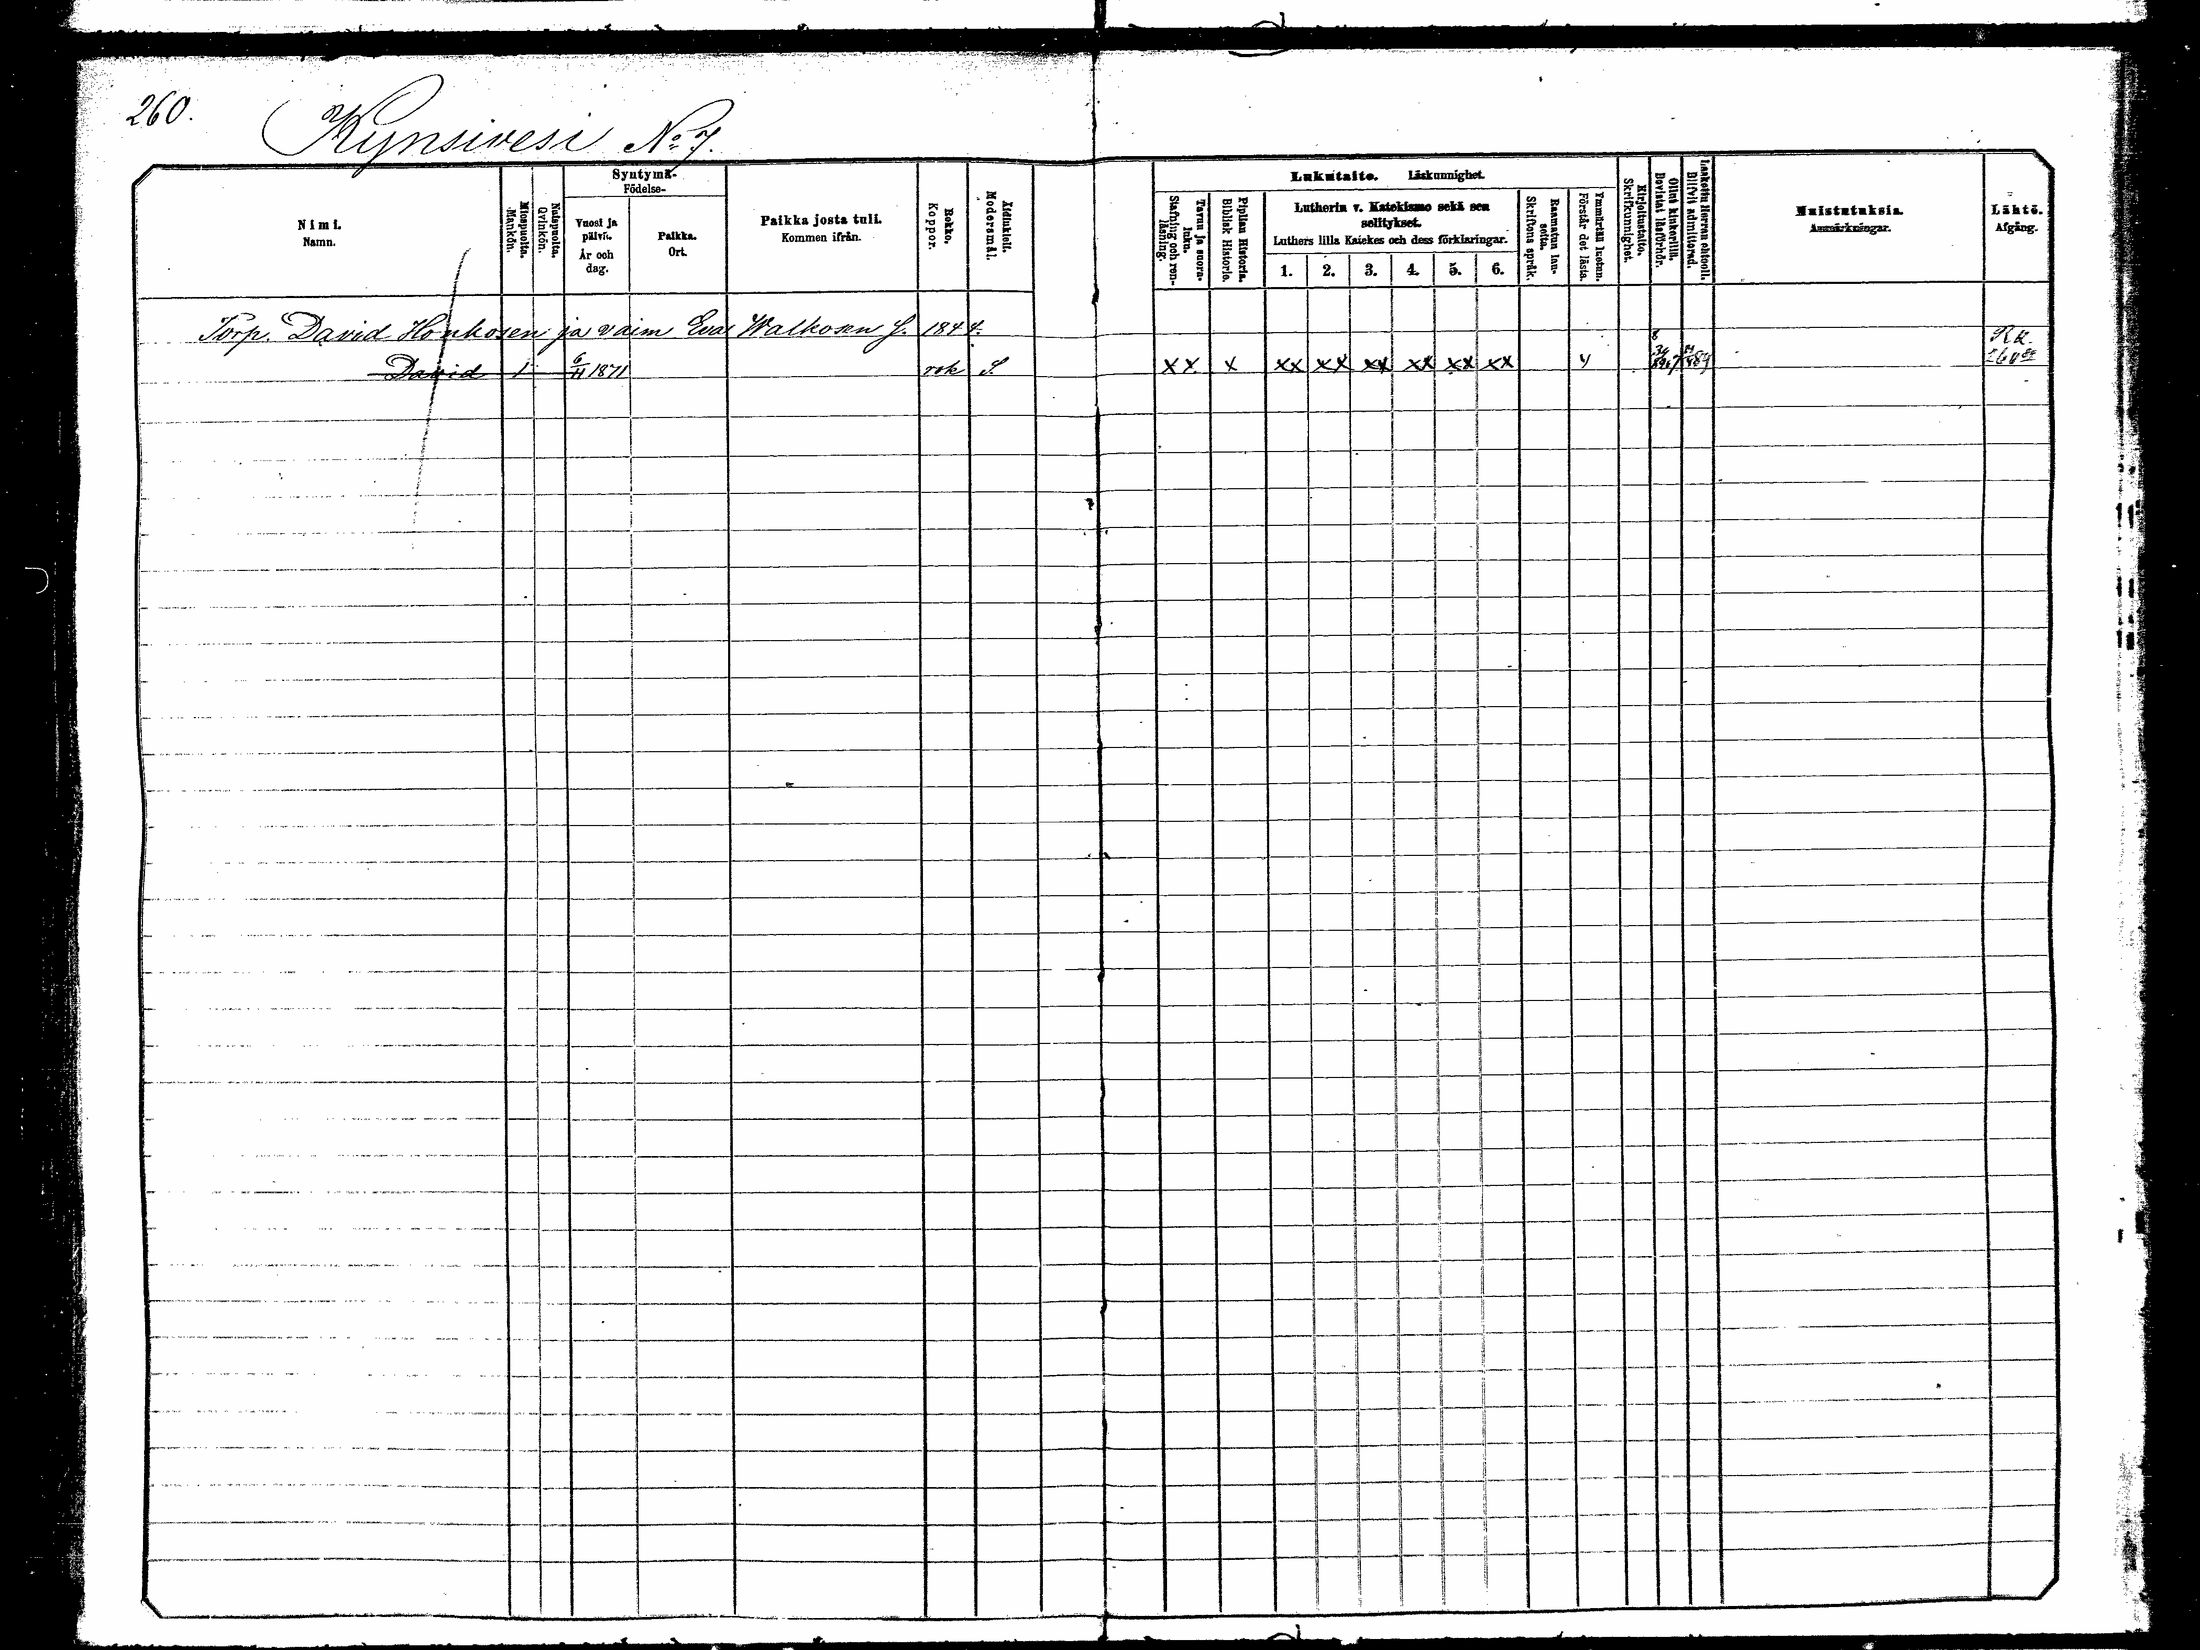 260.
Kynsivesi No 7.
Nimi.
Namn.
Miespuolta.
Mankön.
Naispuolta.
Qvinkön.
Syntymä-
Födelse-
Vuosi ja
päivä.
År och
dag.
Paikka.
Ort.
Paikka josta tuli.
Kommen ifrån.
Rokko.
Koppor.
Äidinkieli.
Modersmål.
Lukutaito. Läskunnighet.
Tavuu ja suora-
luku.
Stafning och ren-
läsning.
Piplian Historia.
Biblisk Historie.
Lutherin v. Katekismo sekä sen
selitykset.
Luthers lilla Katekes och dess förklaringar.
1. 2. 3. 4. 5. 6.
Raamatun lau-
seita.
Skriftens språk.
Ymmärtää luetun.
Förstår det lästa.
Kirjoitustaito.
Skrifkunnighet.
Ollut kinkerillä.
Bevistat läsförhör.
Laskettu Herran ehtool.
Blifvit admitterad.
Muistutuksia.
Anmärkningar.
Lähtö.
Afgång.
Torp. David Honkosen ja vaim Eva Walkosen l. 1844.
Rk.
David 1 6/11 1871 rok S. xx x xx xx xx xx xx xx